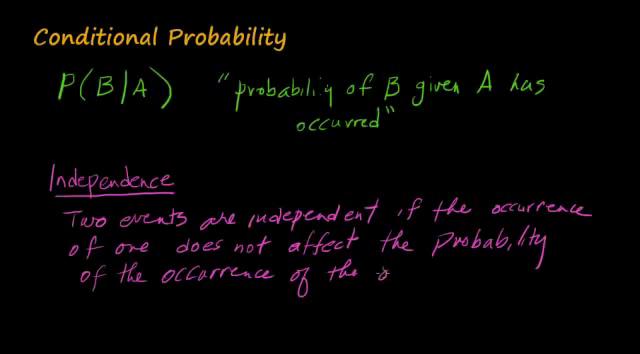 Conditional Probability
P(B/A) "probability of B given A has
occurred"
Independence
Two events are independent if the occurrence
of one does not affect the probability
of the occurrence of the